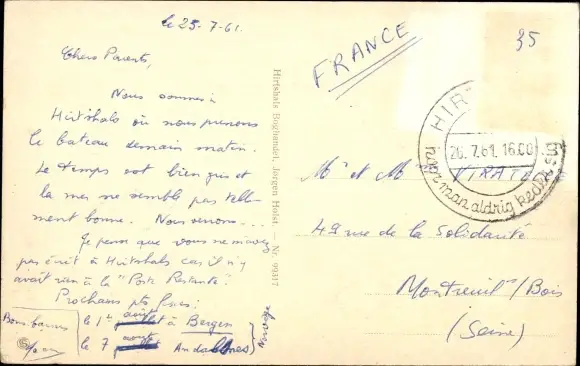 le 25-7-61.
Chers Parents,
Nous sommes à
Hirtshals où nous prenons
le bateau demain matin.
Le temps est bien gris et
la mer ne semble pas telle-
ment bonne. Nous verrons...
Je pense que vous ne m'avez
pas écrit à Hirtshals car il n'y
avait rien à la "Poste Restante".
Prochains pts fixes:
le 1er août à Bergen
le 7 août Andalsnes
Norvège
Bons baisers
Hirtshals Boghandel, Jørgen Holst. — Nr. 99317
FRANCE
35
HIRTSHALS
26.7.61. 16.00
hvor man aldrig keder
Mr et Mme VIRATELLE
49 rue de la Solidarité
Montreuil s/ Bois
(Seine)